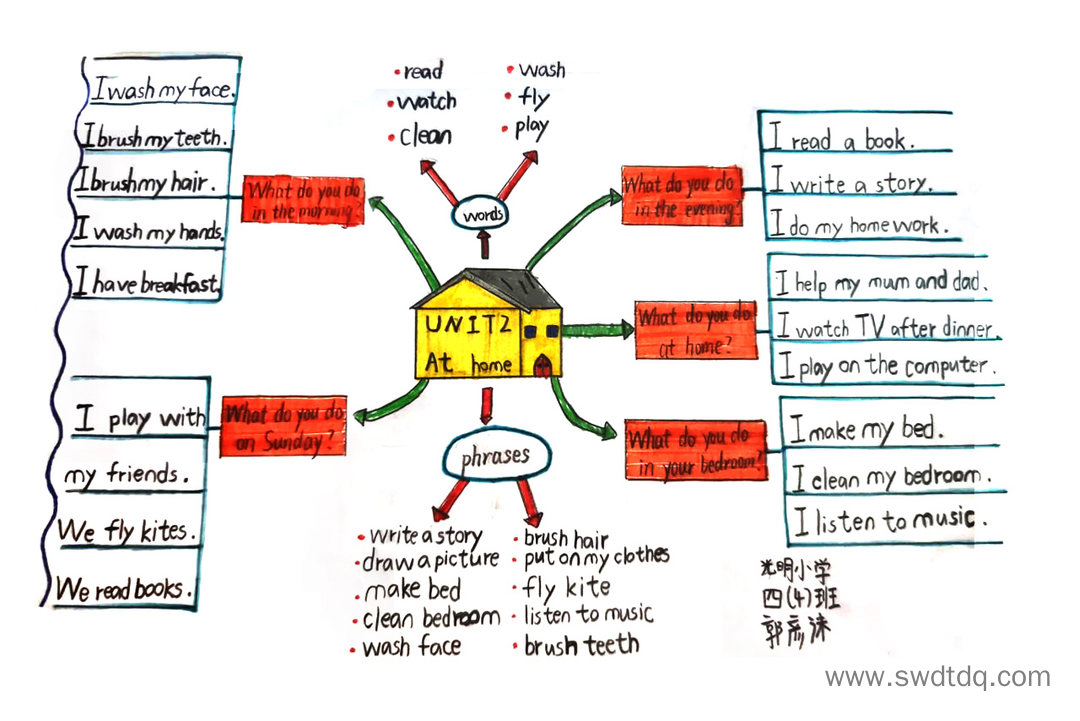 I wash my face.
I brush my teeth.
I brush my hair.
I wash my hands.
I have breakfast.
What do you do
in the morning?
I play with
my friends.
We fly kites.
We read books.
What do you do
on Sunday?
• read
• watch
• clean
• wash
• fly
• play
words
UNIT2
At home
phrases
• write a story
• draw a picture
• make bed
• clean bedroom
• wash face
• brush hair
• put on my clothes
• fly kite
• listen to music
• brush teeth
What do you do
in the evening?
I read a book.
I write a story.
I do my home work.
What do you do
at home?
I help my mum and dad.
I watch TV after dinner.
I play on the computer.
What do you do
in your bedroom?
I make my bed.
I clean my bedroom.
I listen to music.
光明小学
四(4)班
郭彦沫
www.swdtdq.com